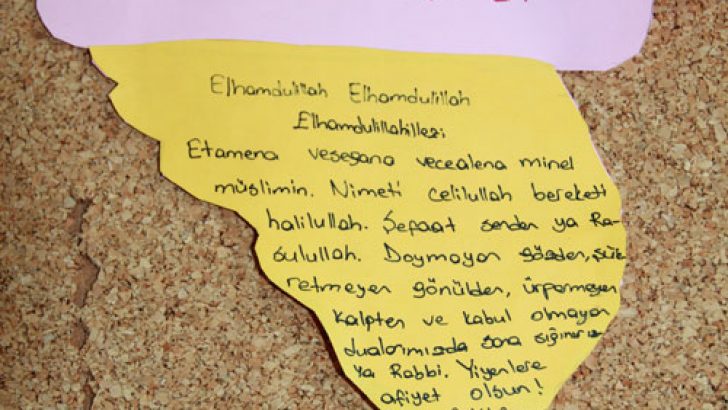 Elhamdulillah Elhamdulillah
Elhamdulillahillezi
Etamena vesegana vecealena minel
müslimin. Nimeti celilullah bereketi
halilullah. Şefaat senden ya Ra-
sulullah. Doymayan gözden, şük
retmeyen gönülden, ürpermeyen
kalpten ve kabul olmayan
dualarımızda sana sığınırız
Ya Rabbi. Yiyenlere
afiyet olsun!